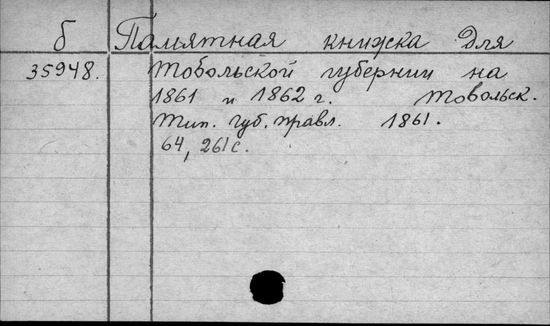 б Памятная книжка для
35948. Тобольской губернии на
1861 и 1862 г. Тобольск.
Тип. губ. правл. 1861.
64, 261 с.